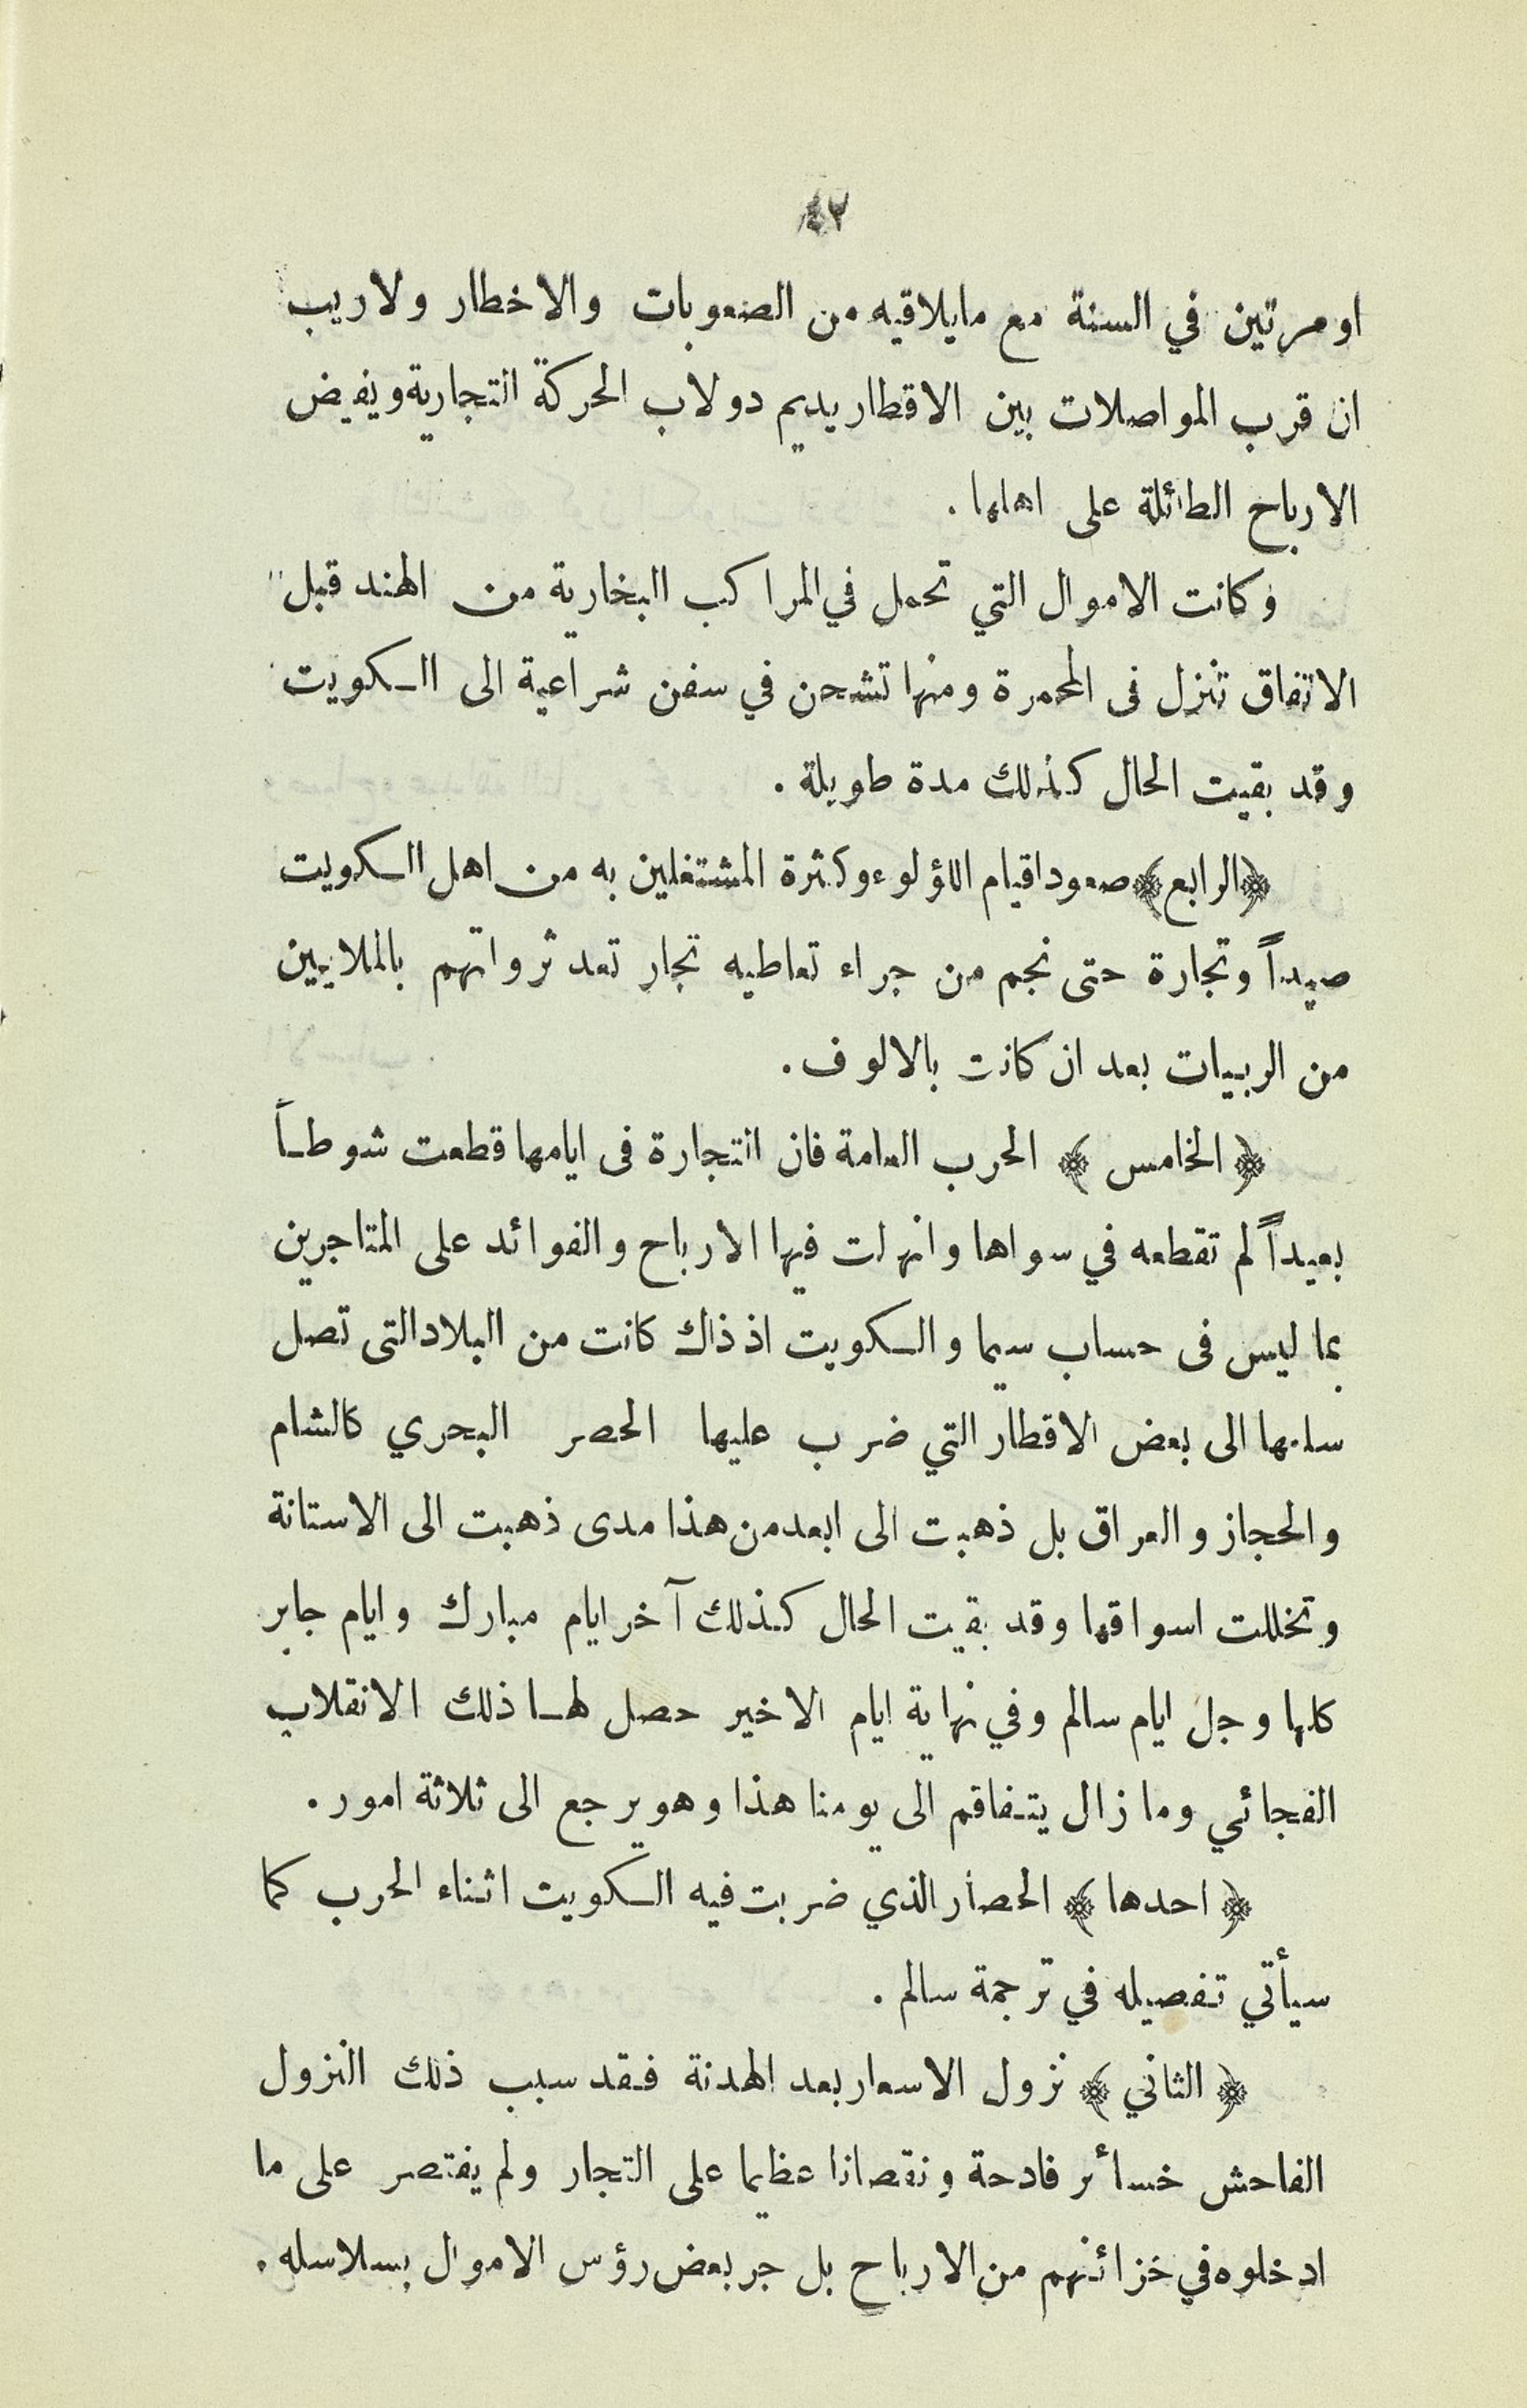 ٤٢
او مرتين في السنة مع مايلاقيه من الصعوبات والاخطار ولاريب
ان قرب المواصلات بين الاقطار يديم دولاب الحركة التجارية ويفيض
الارباح الطائلة على اهلها .
وكانت الاموال التي تحمل في المراكب البخارية من الهند قبل
الاتفاق تنزل فى المحمرة ومنها تشحن في سفن شراعية الى الكويت
وقد بقيت الحال كذلك مدة طويلة .
﴿الرابع﴾ صعود اقيام اللؤلوء وكثرة المشتغلين به من اهل الكويت
صيداً وتجارة حتى نجم من جراء تعاطيه تجار تعد ثرواتهم بالملايين
من الربيات بعد ان كانت بالالوف .
﴿ الخامس ﴾ الحرب العامة فان التجارة فى ايامها قطعت شوطاً
بعيداً لم تقطعه في سواها وانهلت فيها الارباح والفوائد على المتاجرين
بما ليس فى حساب سيما والكويت اذ ذاك كانت من البلاد التى تصل
سلعها الى بعض الاقطار التي ضرب عليها الحصر البحري كالشام
والحجاز والعراق بل ذهبت الى ابعد من هذا مدى ذهبت الى الاستانة
وتخللت اسواقها وقد بقيت الحال كذلك آخر ايام مبارك وايام جابر
كلها وجل ايام سالم وفي نهاية ايام الاخير حصل لها ذلك الانقلاب
الفجائي وما زال يتفاقم الى يومنا هذا وهو يرجع الى ثلاثة امور .
﴿ احدها ﴾ الحصار الذي ضربت فيه الكويت اثناء الحرب كما
سيأتي تفصيله في ترجمة سالم .
﴿ الثاني ﴾ نزول الاسعار بعد الهدنة فقد سبب ذلك النزول
الفاحش خسائر فادحة ونقصانا عظيما على التجار ولم يقتصر على ما
ادخلوه في خزائنهم من الارباح بل جر بعض رؤس الاموال بسلاسله .